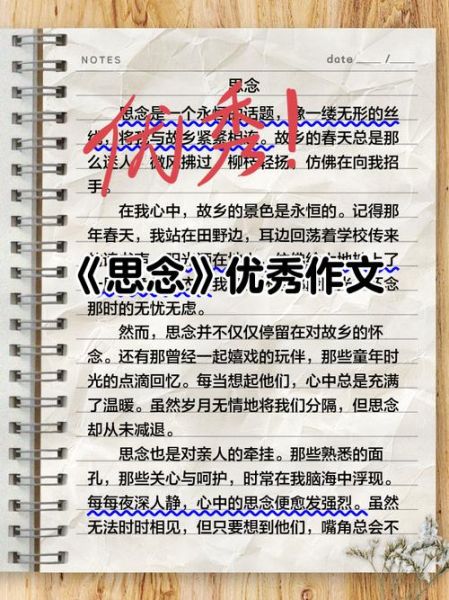 NOTES date ____ /____
思念
思念是一个永恒的话题，像一缕无形的丝
线，将我与故乡紧紧相连。故乡的春天总是那
么迷人，微风拂过，柳枝轻扬，仿佛在向我招
手。
优秀！
在我心中，故乡的景色是永恒的。记得那
年春天，我站在田野边，耳边回荡着学校传来
《思念》优秀作文
那时的无忧无虑。
然而，思念并不仅仅停留在对故乡的怀
念。还有那曾经一起嬉戏的玩伴，那些童年时
光的点滴回忆。每当想起他们，心中总是充满
了温暖。虽然岁月无情地将我们分隔，但思念
却从未减退。
思念也是对亲人的牵挂。那些熟悉的面
孔，那些关心与呵护，时常在我脑海中浮现。
每每夜深人静，心中的思念便愈发强烈。虽然
无法时时相见，但只要想到他们，嘴角总会不